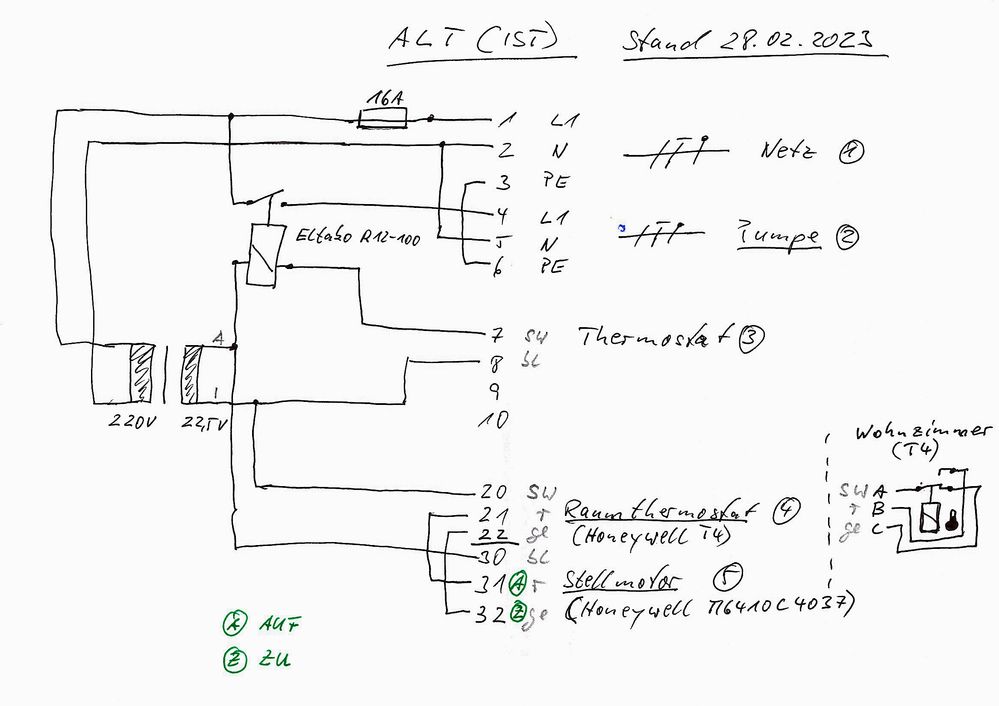 ALT (IST) Stand 28.02.2023
16A
1 L1
2 N Netz 1
3 PE
4 L1
Eltako R12-100
5 N Pumpe 2
6 PE
7 sw Thermostat 3
4
8 bl
9
1
10
220V 22,5V
Wohnzimmer
(T4)
20 SW
21 r Raumthermostat 4
22 ge (Honeywell T4)
30 bl
31 A r Stellmotor 5
32 Z ge (Honeywell M6410C4037)
SW A
r B
ge C
A AUF
Z ZU